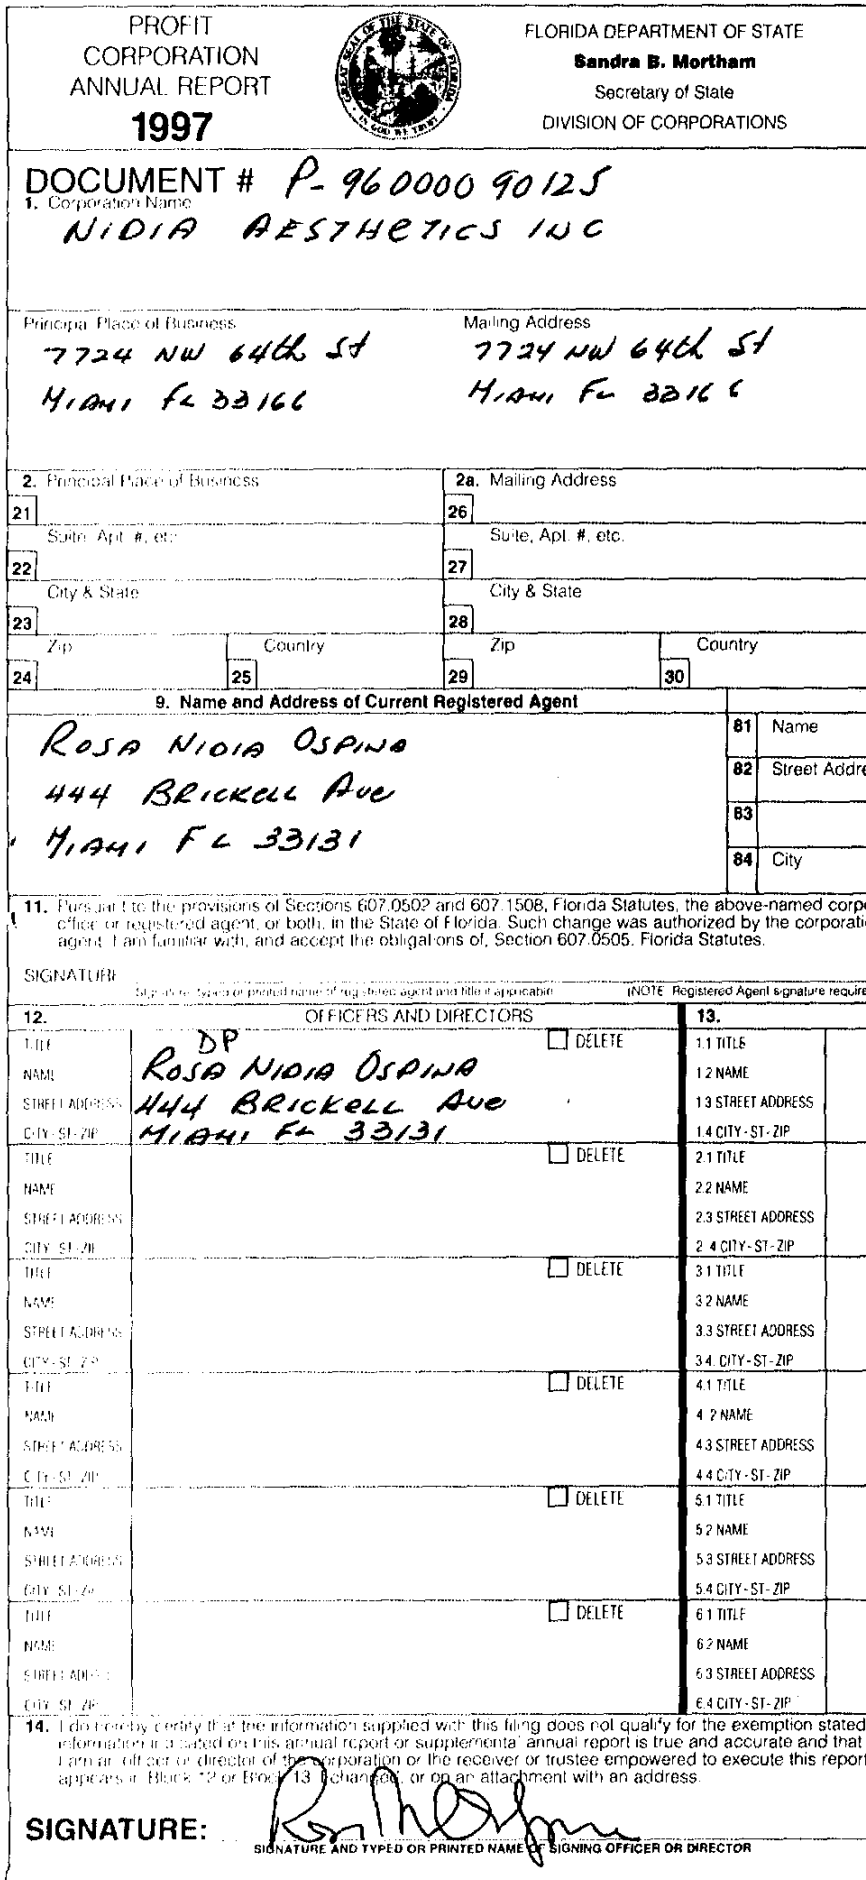 PROFIT
CORPORATION
ANNUAL REPORT
1997
GREAT SEAL OF THE STATE OF FLORIDA
IN GOD WE TRUST
FLORIDA DEPARTMENT OF STATE
Sandra B. Mortham
Secretary of State
DIVISION OF CORPORATIONS
DOCUMENT # P-96000090125
1. Corporation Name
NIDIA AESTHETICS INC
Principal Place of Business
7724 NW 64th St
MIAMI FL 33166
Mailing Address
7724 NW 64th St
MIAMI FL 33166
2. Principal Place of Business
2a. Mailing Address
21
26
Suite, Apt. #, etc.
Suite, Apt. #, etc.
22
27
City & State
City & State
23
28
Zip
Country
Zip
Country
24
25
29
30
9. Name and Address of Current Registered Agent
ROSA NIDIA OSPINA
444 BRICKELL AVE
MIAMI FL 33131
81 Name
82 Street Addre
83
84 City
11. Pursuant to the provisions of Sections 607.0502 and 607.1508, Florida Statutes, the above-named corpo
office or registered agent, or both, in the State of Florida. Such change was authorized by the corporati
agent. I am familiar with, and accept the obligations of, Section 607.0505, Florida Statutes.
SIGNATURE
Signature, typed or printed name of registered agent and title if applicable
(NOTE Registered Agent signature require
12. OFFICERS AND DIRECTORS
13.
TITLE DP DELETE 1.1 TITLE
NAME ROSA NIDIA OSPINA 1 2 NAME
STREET ADDRESS 444 BRICKELL AVE 1 3 STREET ADDRESS
CITY-ST-ZIP MIAMI FL 33131 1.4 CITY-ST-ZIP
TITLE DELETE 2.1 TITLE
NAME 2.2 NAME
STREET ADDRESS 2.3 STREET ADDRESS
CITY-ST-ZIP 2 4 CITY-ST-ZIP
TITLE DELETE 3 1 TITLE
NAME 3 2 NAME
STREET ADDRESS 3.3 STREET ADDRESS
CITY-ST-ZIP 3 4. CITY-ST-ZIP
TITLE DELETE 4.1 TITLE
NAME 4 2 NAME
STREET ADDRESS 4.3 STREET ADDRESS
CITY-ST-ZIP 4 4 CITY-ST-ZIP
TITLE DELETE 5.1 TITLE
NAME 5 2 NAME
STREET ADDRESS 5.3 STREET ADDRESS
CITY-ST-ZIP 5.4 CITY-ST-ZIP
TITLE DELETE 6 1 TITLE
NAME 6 2 NAME
STREET ADDRESS 6 3 STREET ADDRESS
CITY-ST-ZIP 6.4 CITY-ST-ZIP
14. I do hereby certify that the information supplied with this filing does not qualify for the exemption stated
information indicated on this annual report or supplemental annual report is true and accurate and that
I am an officer or director of the corporation or the receiver or trustee empowered to execute this report
appears in Block 12 or Block 13 if changed, or on an attachment with an address.
SIGNATURE:
SIGNATURE AND TYPED OR PRINTED NAME OF SIGNING OFFICER OR DIRECTOR